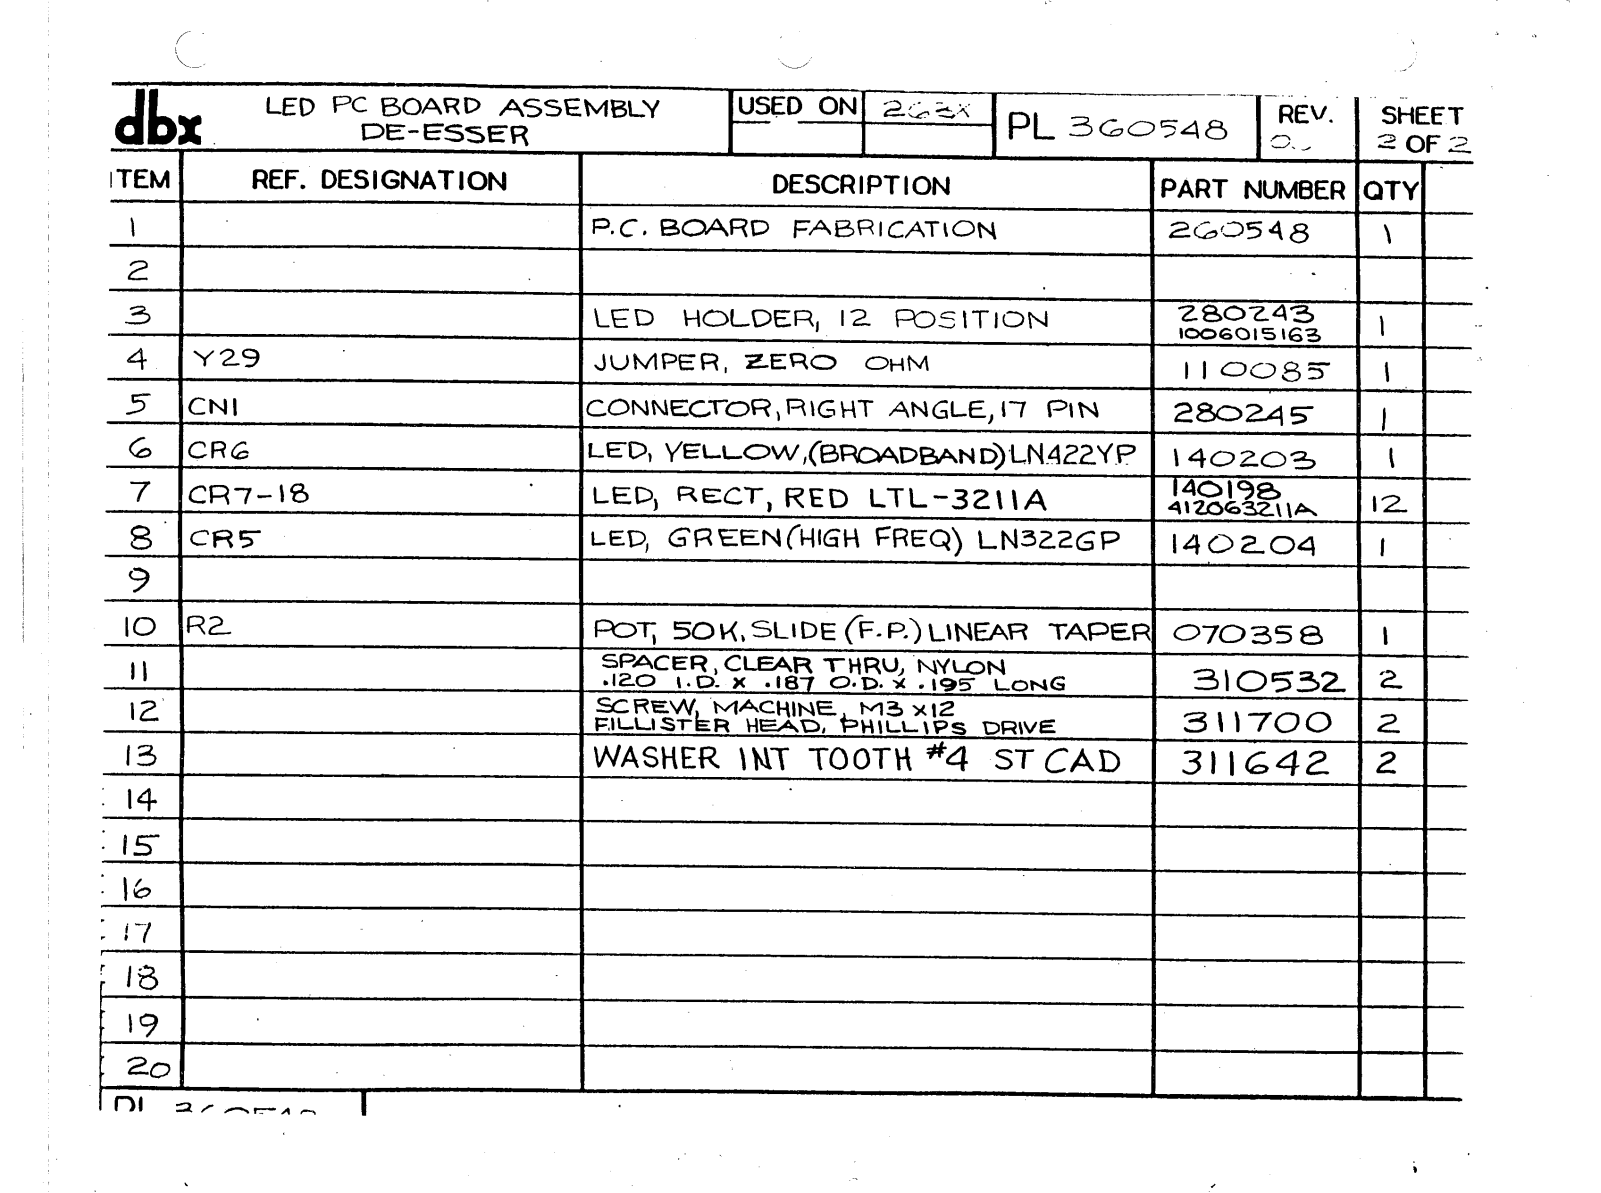 dbx LED PC BOARD ASSEMBLY DE-ESSER USED ON 263X PL 360548 REV. SHEET 2 OF 2
ITEM REF. DESIGNATION DESCRIPTION PART NUMBER QTY
1 P.C. BOARD FABRICATION 260548 1
2
3 LED HOLDER, 12 POSITION 280243 1006015163 1
4 Y29 JUMPER, ZERO OHM 110085 1
5 CN1 CONNECTOR, RIGHT ANGLE, 17 PIN 280245 1
6 CR6 LED, YELLOW, (BROADBAND) LN422YP 140203 1
7 CR7-18 LED, RECT, RED LTL-3211A 140198 412063211A 12
8 CR5 LED, GREEN (HIGH FREQ) LN322GP 140204 1
9
10 R2 POT, 50K, SLIDE (F.P.) LINEAR TAPER 070358 1
11 SPACER, CLEAR THRU, NYLON .120 I.D. X .187 O.D. X .195 LONG 310532 2
12 SCREW, MACHINE, M3 X12 FILLISTER HEAD, PHILLIPS DRIVE 311700 2
13 WASHER INT TOOTH #4 ST CAD 311642 2
14
15
16
17
18
19
20